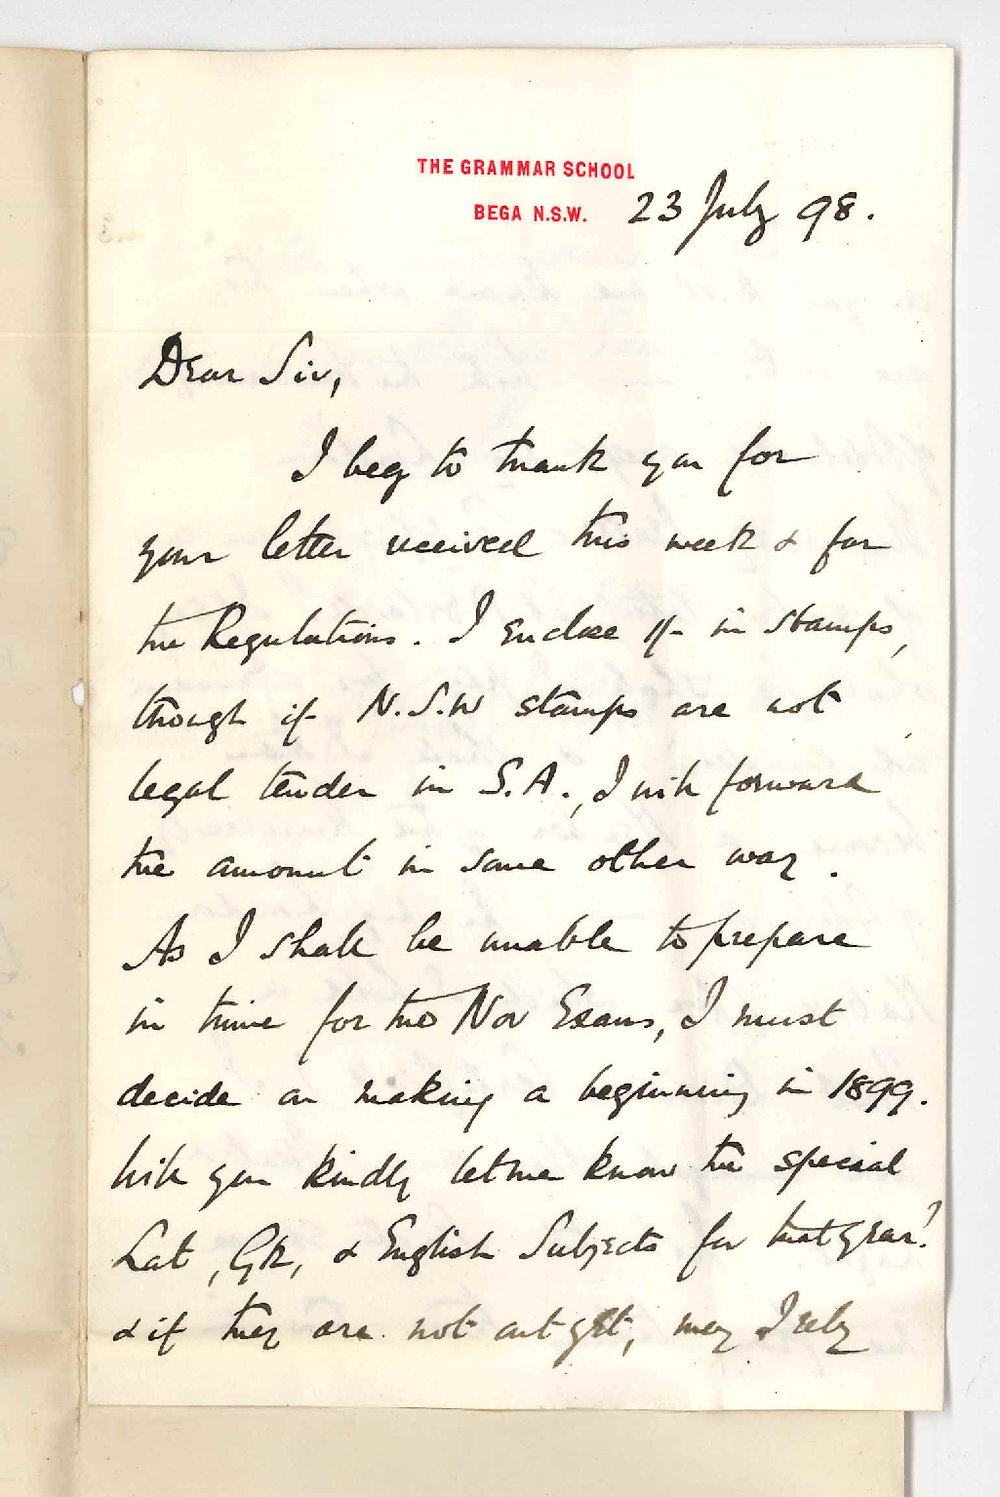 THE GRAMMAR SCHOOL
BEGA N.S.W. 23 July 98.
Dear Sir,
I beg to thank you for
your letter received this week & for
the Regulations. I enclose 1/- in stamps,
though if N.S.W stamps are not
legal tender in S.A., I will forward
the amount in some other way.
As I shall be unable to prepare
in time for the Nov Exams, I must
decide on making a beginning in 1899.
Will you kindly let me know the special
Lat, Gk, & English Subjects for that year?
& if they are not out yet, may I rely